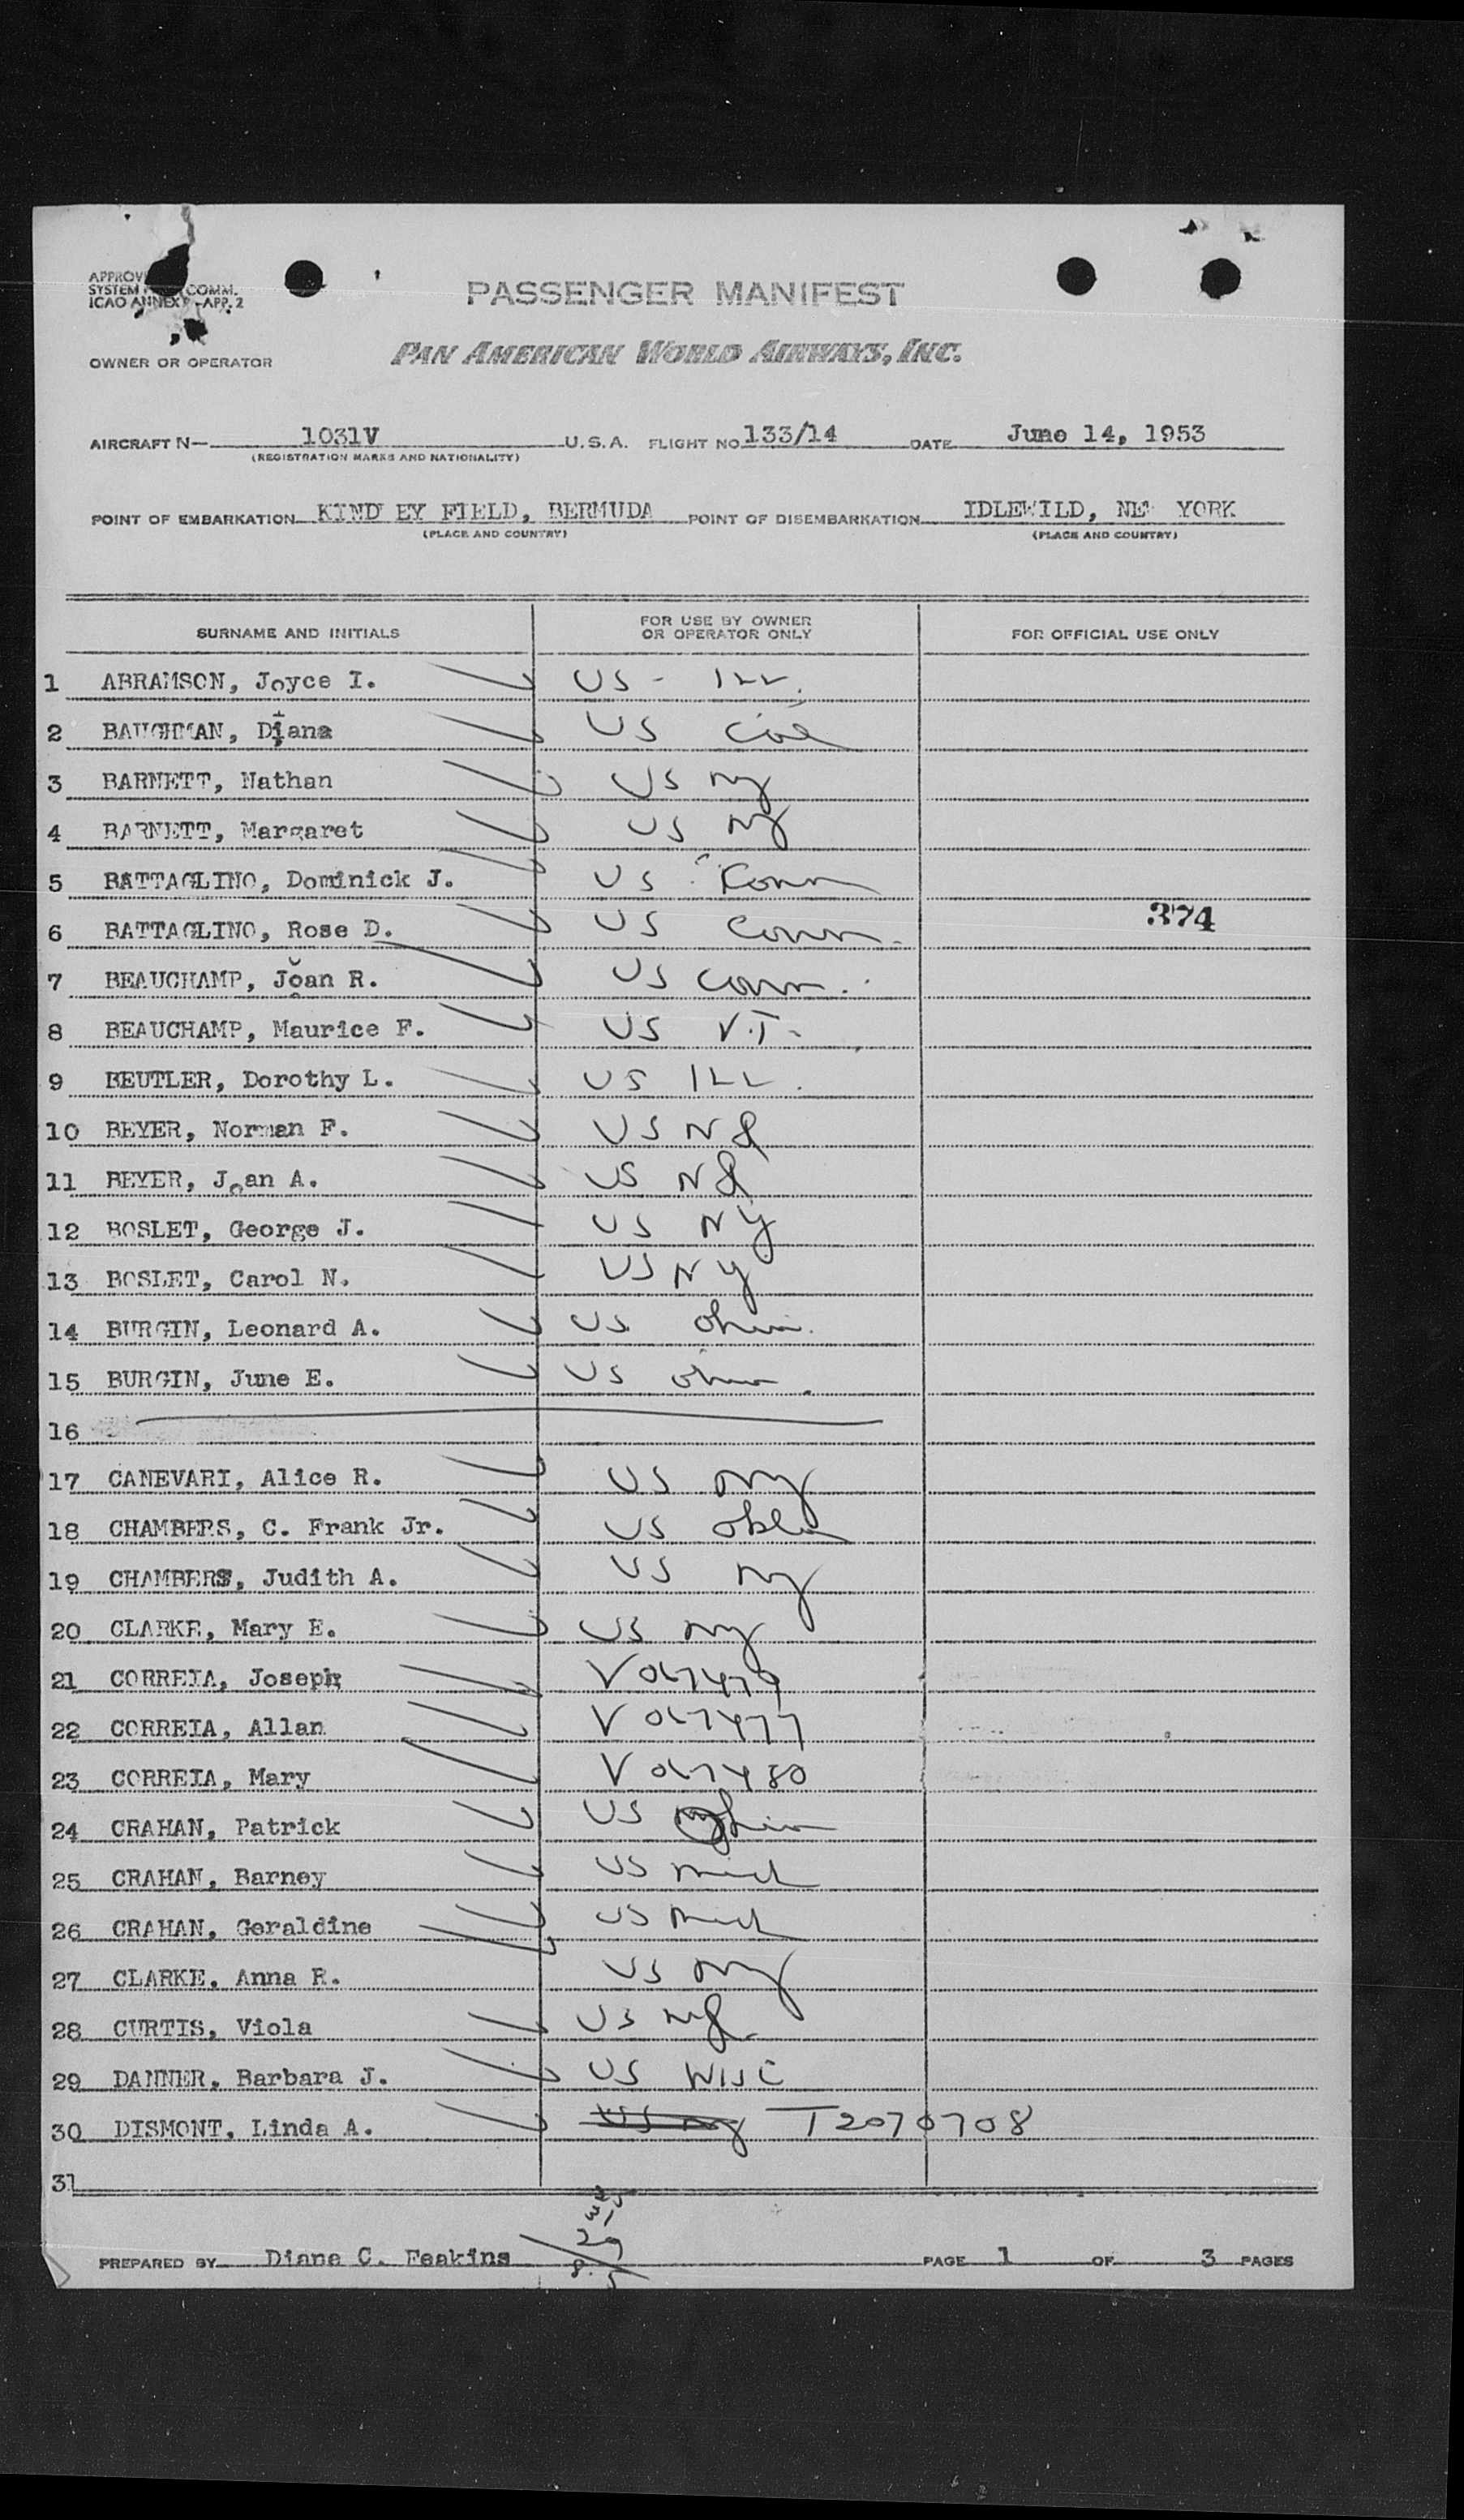 APPROV
SYSTEM COMM.
ICAO ANNEX -APP. 2
PASSENGER MANIFEST
OWNER OR OPERATOR
PAN AMERICAN WORLD AIRWAYS, INC.
AIRCRAFT N— 1031V U.S.A. FLIGHT NO 133/14 DATE June 14, 1953
(REGISTRATION MARKS AND NATIONALITY)
POINT OF EMBARKATION KIND EY FIELD, BERMUDA POINT OF DISEMBARKATION IDLEWILD, NEW YORK
(PLACE AND COUNTRY) (PLACE AND COUNTRY)
SURNAME AND INITIALS FOR USE BY OWNER OR OPERATOR ONLY FOR OFFICIAL USE ONLY
1 ABRAMSON, Joyce I. US - ILL.
2 BAUGHMAN, Diana US
3 BARNETT, Nathan US NY
4 BARNETT, Margaret US NY
5 BATTAGLINO, Dominick J. US Conn
6 BATTAGLINO, Rose D. US Conn. 374
7 BEAUCHAMP, Joan R. US Conn.
8 BEAUCHAMP, Maurice F. US V.T.
9 BEUTLER, Dorothy L. US ILL.
10 BEYER, Norman F. US NJ
11 BEYER, Joan A. US NJ
12 BOSLET, George J. US NY
13 BOSLET, Carol N. US NY
14 BURGIN, Leonard A. US Ohio.
15 BURGIN, June E. US Ohio.
16
17 CANEVARI, Alice R. US NY
18 CHAMBERS, C. Frank Jr. US Okla
19 CHAMBERS, Judith A. US NY
20 CLARKE, Mary E. US NY
21 CORREIA, Joseph V 067479
22 CORREIA, Allan V 067477
23 CORREIA, Mary V 067480
24 CRAHAN, Patrick US
25 CRAHAN, Barney US Mich
26 CRAHAN, Geraldine US Mich
27 CLARKE, Anna R. US NY
28 CURTIS, Viola US NJ
29 DANNER, Barbara J. US WISC
30 DISMONT, Linda A. US NY T2070708
31
PREPARED BY Diane C. Feakins PAGE 1 OF 3 PAGES